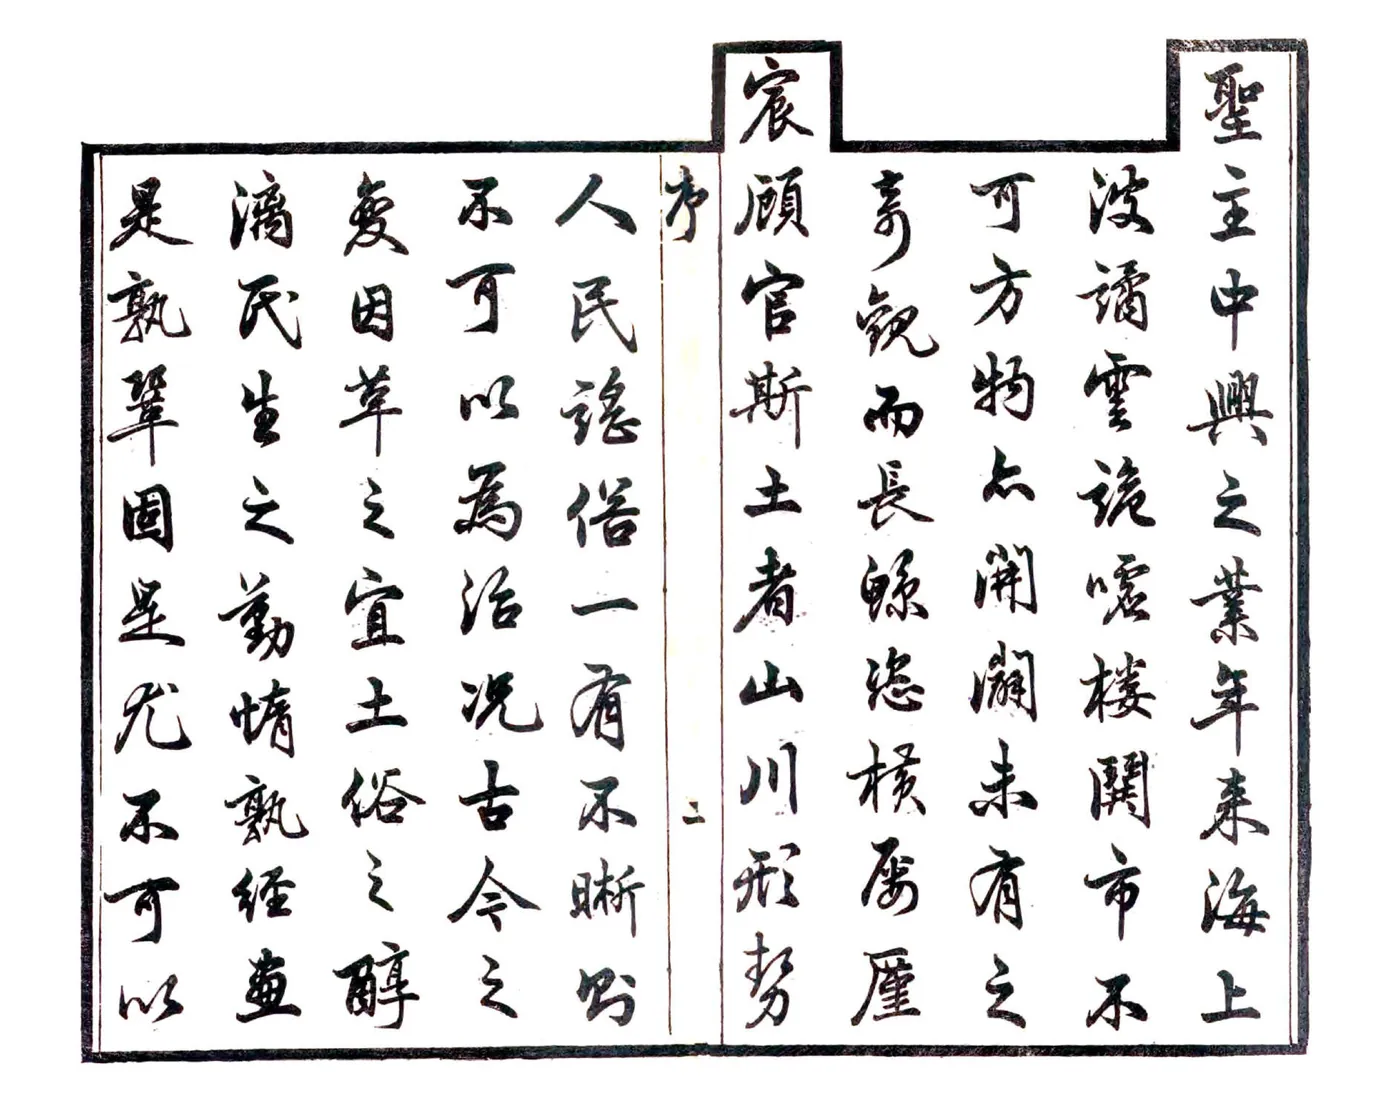 聖主中興之業年來海上
波譎雲詭噓樓鬭市不
可方物亦開闢未有之
奇觀而長鯨恣橫屢廑
宸顧官斯土者山川形勢
序
二
人民謠俗一有不晰則
不可以為治況古今之
變因革之宜土俗之醇
漓民生之勤惰孰經畫
是孰鞏固是尤不可以